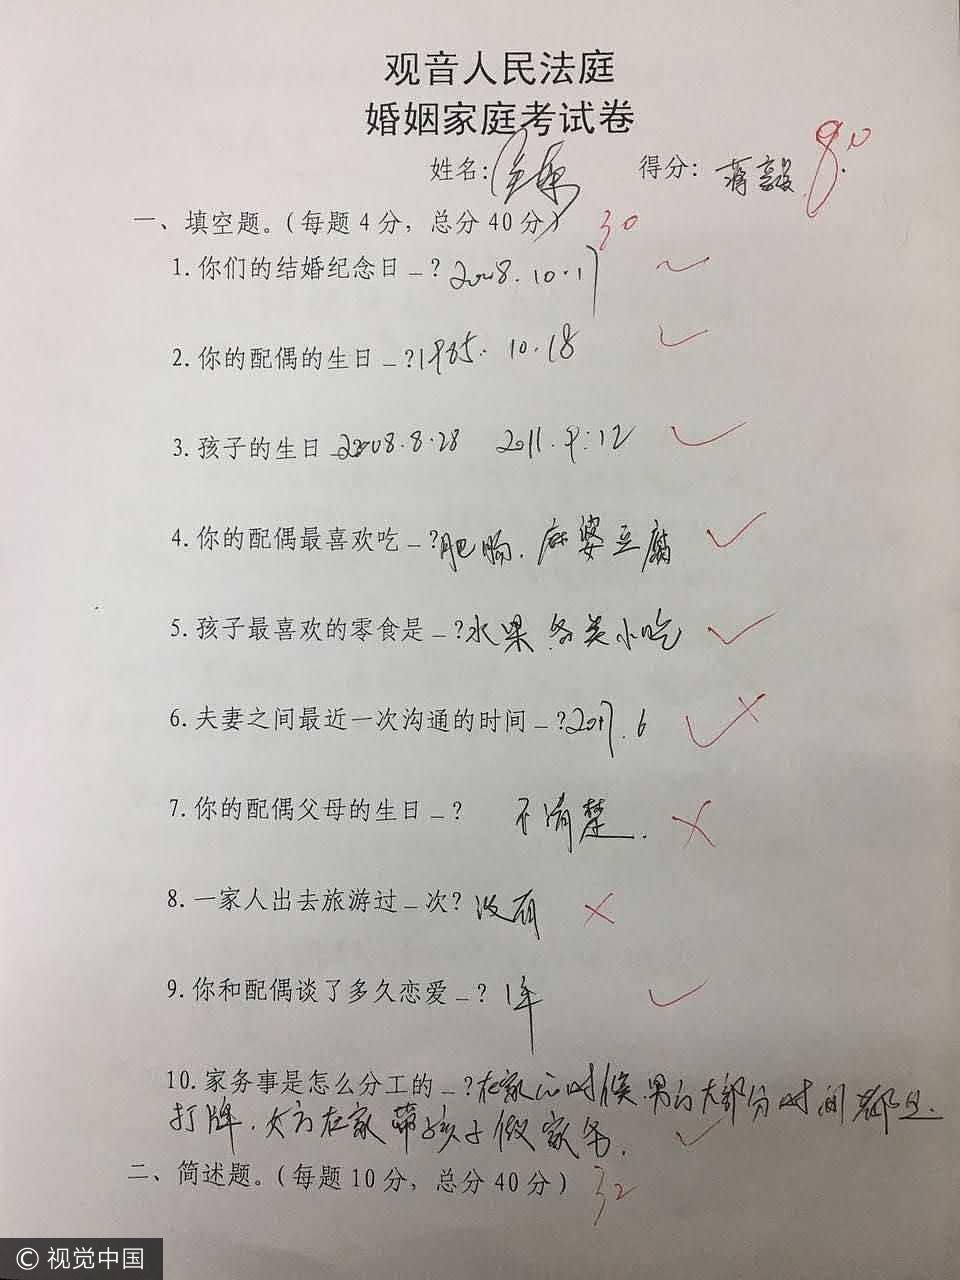 观音人民法庭
婚姻家庭考试卷
姓名: 得分: 蒋毅 80
一、填空题。(每题 4 分，总分 40 分) 30
1. 你们的结婚纪念日 _? 2008.10.17
2. 你的配偶的生日 _? 1985. 10.18
3. 孩子的生日 _ 2008.8.28 2011.9.12
4. 你的配偶最喜欢吃 _? 肥肠. 麻婆豆腐
5. 孩子最喜欢的零食是 _? 水果 各类小吃
6. 夫妻之间最近一次沟通的时间 _? 2017.6
7. 你的配偶父母的生日 _? 不清楚.
8. 一家人出去旅游过 _ 次? 没有
9. 你和配偶谈了多久恋爱 _? 1年
10. 家务事是怎么分工的 _? 在家的时候.男的大部分时间都是.
打牌.女方在家带孩子做家务.
二、简述题。(每题 10 分，总分 40 分) 32
© 视觉中国